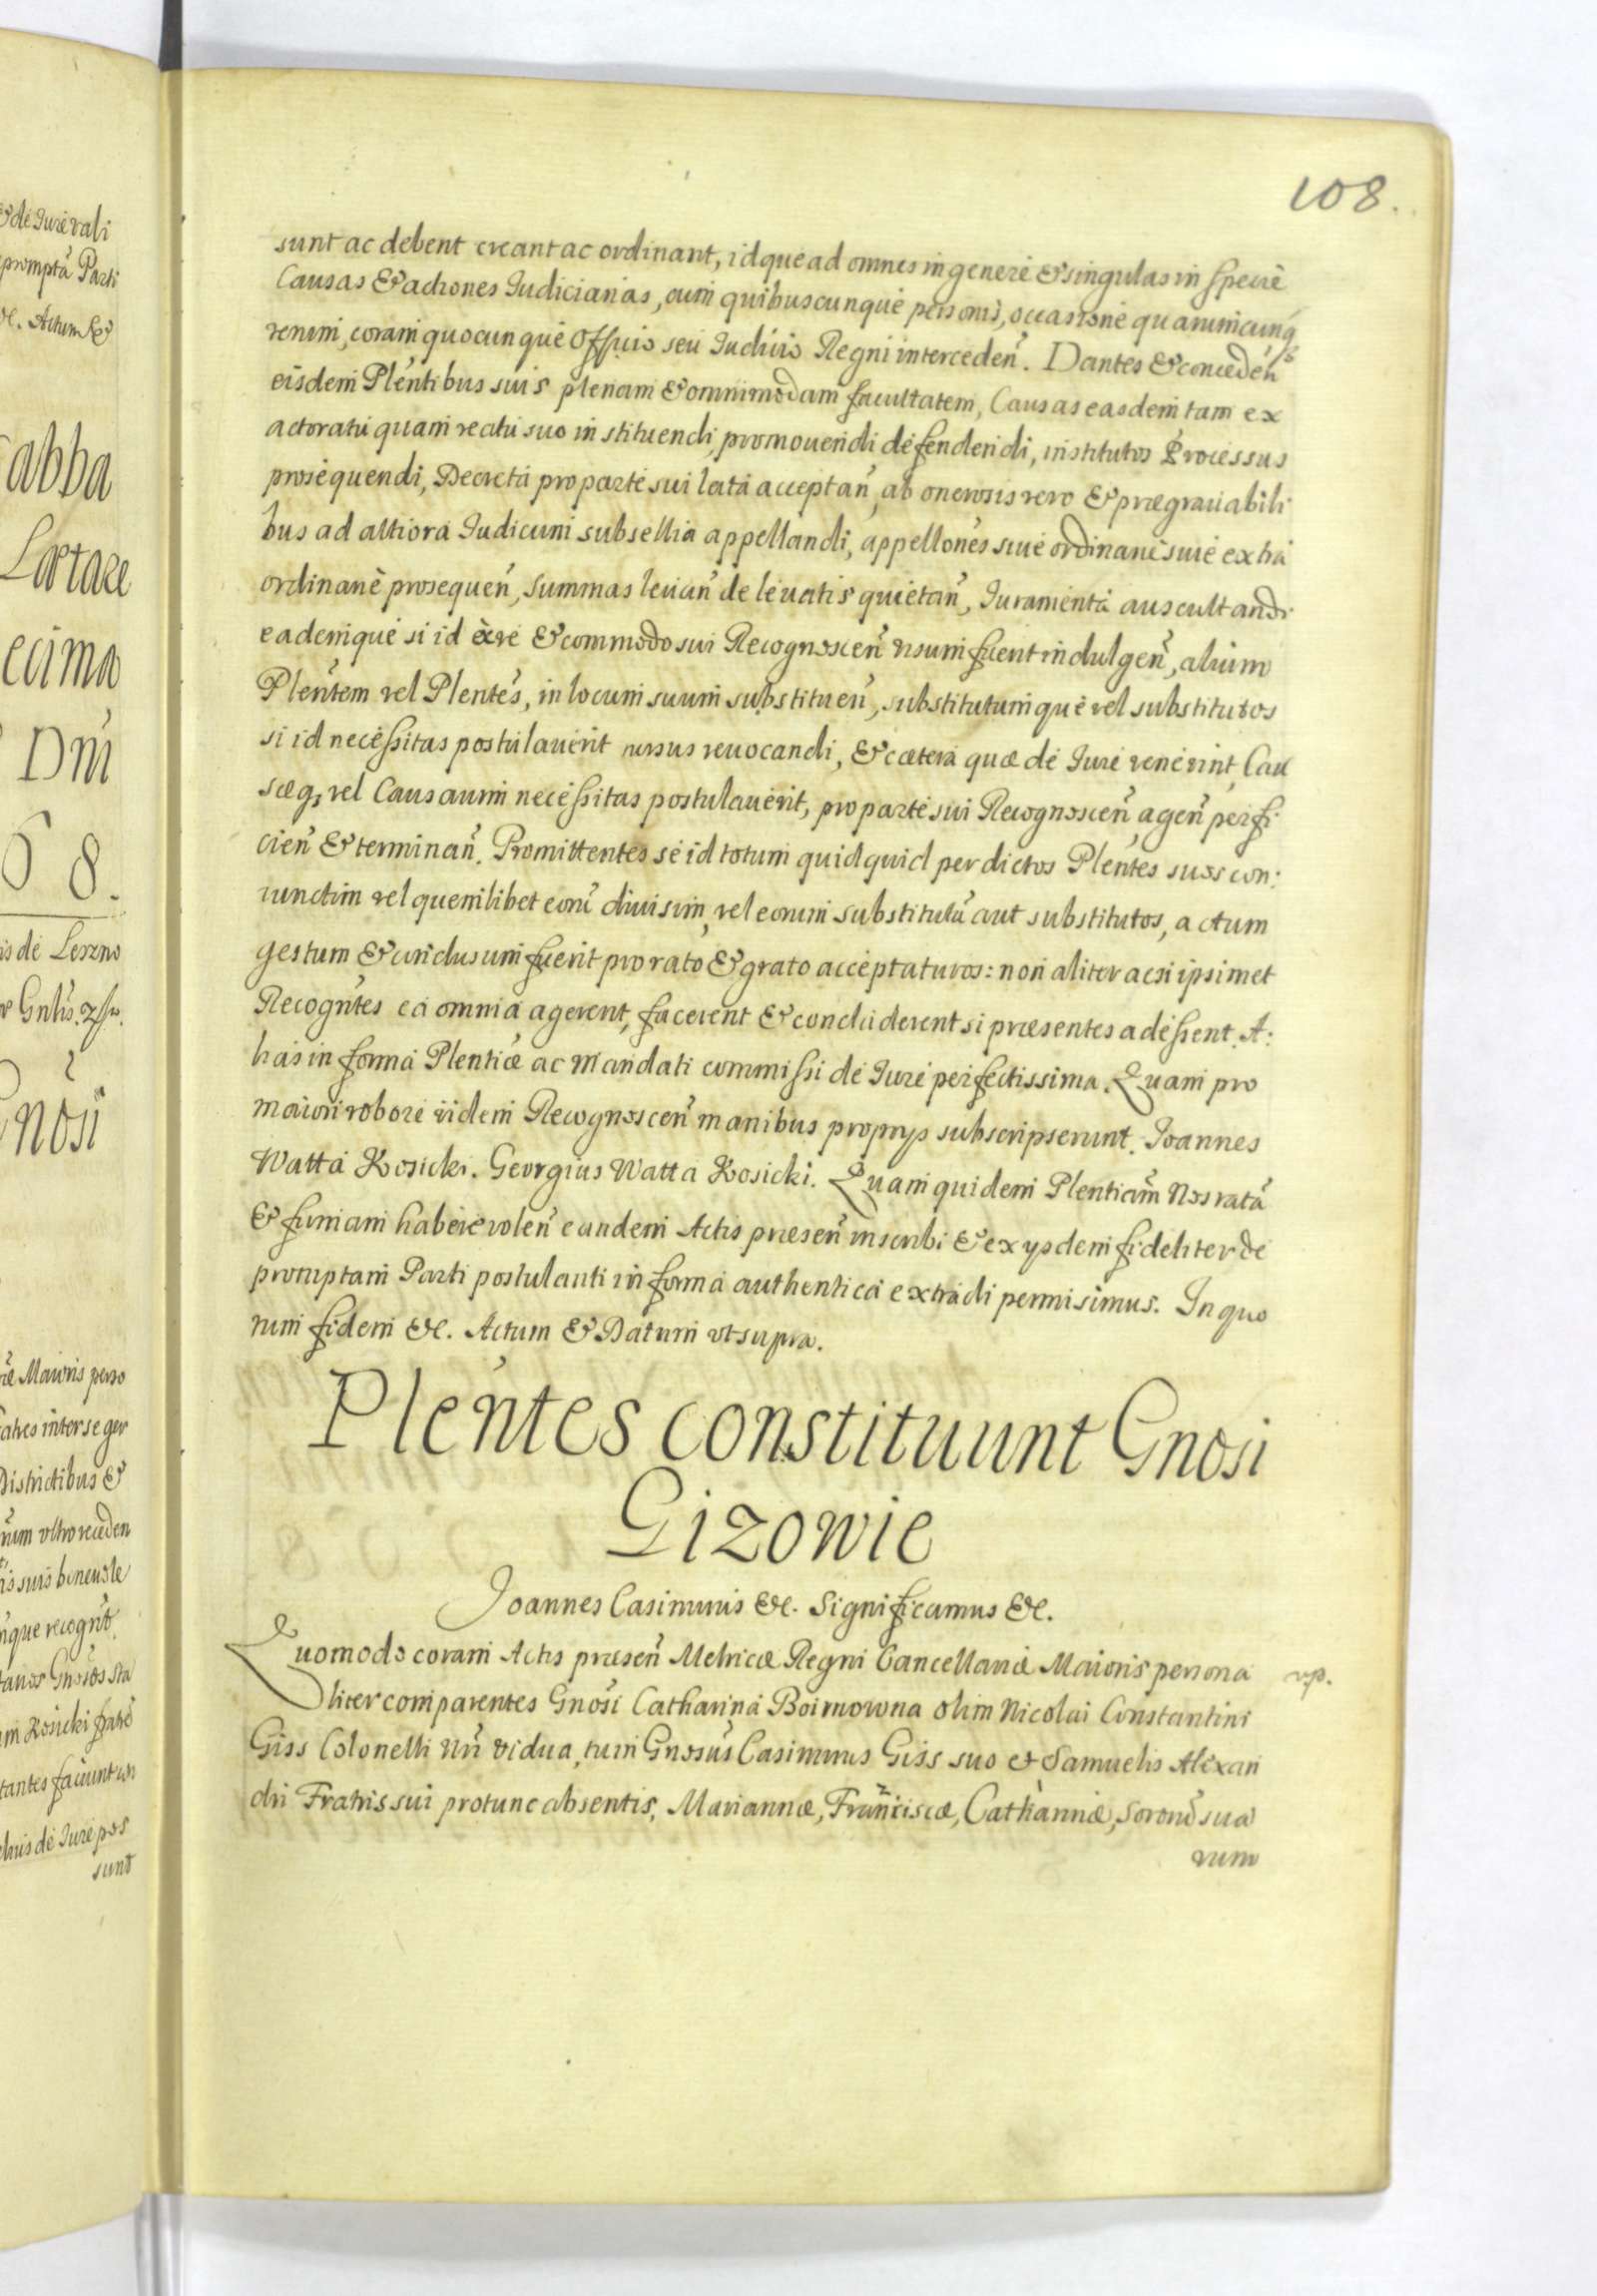 108.
sunt ac debent creant ac ordinant, idque ad omnes in genere & singulas in specie
Causas & actiones Iudiciarias, cum quibuscunque personis, occasione quarumcunq;
rerum, coram quocunque Officio seu Iudicio Regni interceden̄. Dantes & conceden̄
eisdem Plen̄tibus suis plenam & omnimodam facultatem, Causas easdem tam ex
actoratu quam reatu suo instituendi, promouendi defendendi, institutos Processus
prosequendi, Decreta pro parte sui lata acceptan̄, ab onerosis vero & prægrauabili
bus ad altiora Iudicum subsellia appellandi, appellōnes siue ordinarie siue extra
ordinarie prosequen̄, summas leuan̄ de leuatis quietan̄, Iuramenta auscultandi
eademque si id ex re & commodo sui Recognoscen̄ visum fuerit indulgen̄, alium
Plen̄tem vel Plen̄tes, in locum suum substituen̄, substitutumque vel substitutos
si id necessitas postulauerit rursus reuocandi, & cætera quæ de Iure venerint, Cau
sæq; vel Causarum necessitas postulauerit, pro parte sui Recognoscen̄ agen̄ perfi:
cien̄ & terminan̄. Promittentes se id totum quidquid per dictos Plen̄tes suos con:
iunctim vel quemlibet eorū diuisim, vel eorum substitutū aut substitutos, actum
gestum & conclusum fuerit pro rato & grato acceptaturos: non aliter ac si ipsimet
Recogn̄tes ea omnia agerent, facerent & concluderent si præsentes adessent. A:
lias in forma Plen̄tiæ ac Mandati commissi de Iure perfectissima. Quam pro
maiori robore iidem Recognoscen̄ manibus proprys subscripserunt. Joannes
Watta Kosicki. Georgius Watta Kosicki. Quam quidem Plen̄tiam Nos ratā
& firmam habere volen̄ eandem Actis præsen̄ inscribi & ex ysdem fideliter de
promptam Parti postulanti in forma authentica extradi permisimus. In quo
rum fidem &c. Actum & Datum vt supra.
Plen̄tes constituunt Gnosi
Gizowie
Joannes Casimirus &c. Significamus &c.
Quomodo coram Actis præsen̄ Metricæ Regni Cancellariæ Maioris persona
liter comparentes Gnosi Catharina Boimowna olim Nicolai Constantini
Giss Colonelli Nrī vidua, tum Gnosus Casimirus Giss suo et Samuelis Alexan
dri Fratris sui protunc absentis, Mariannæ, Franciscæ, Catharinæ, Sororū sua
rum